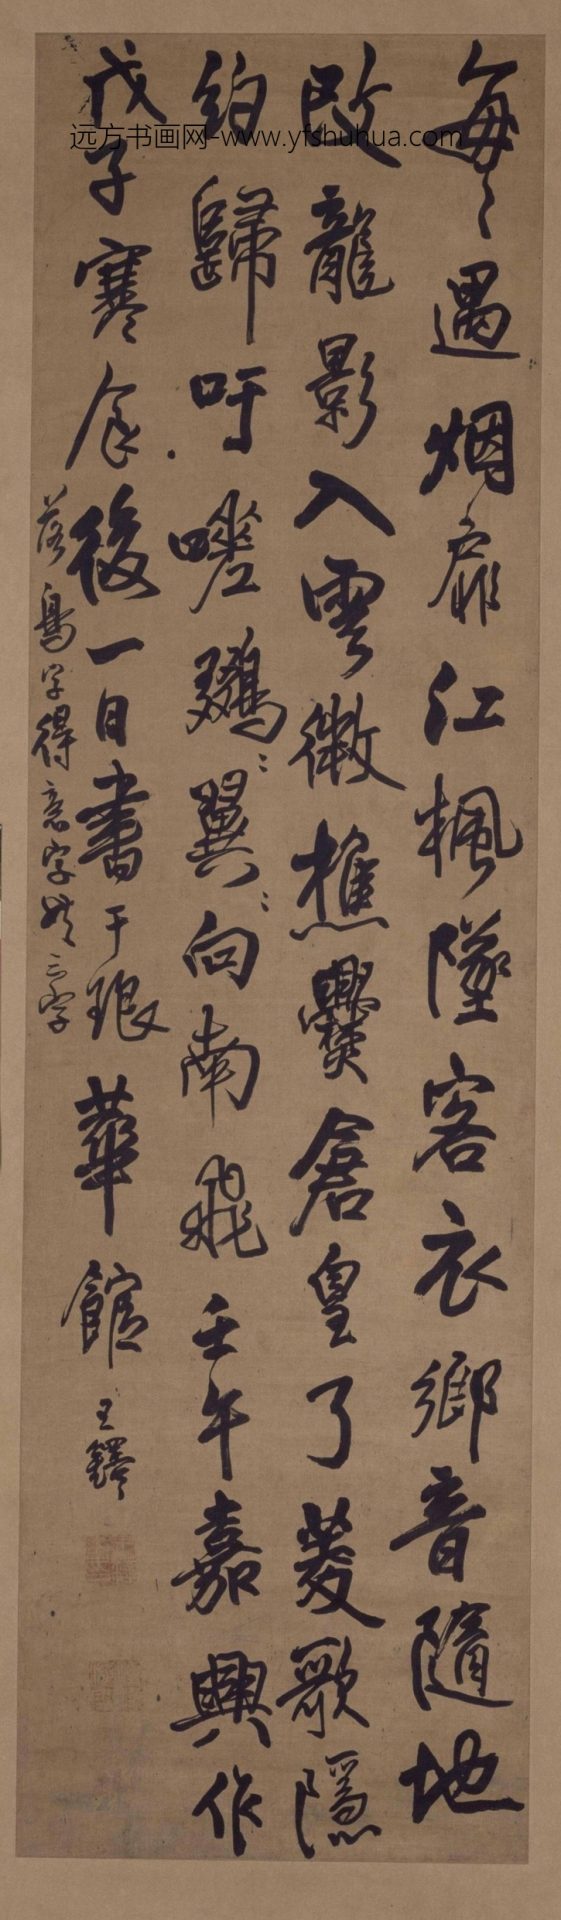 每〻遇烟扉江楓墜客衣鄉音隨地
改龍影入雲微樵爨倉皇了菱歌隱
約歸吁嗟鵝〻翼〻向南飛壬午嘉興作
戊子寒食後一日書于琅華館王鐸
落鳥字得意字共三字
远方书画网-www.yfshuhua.com